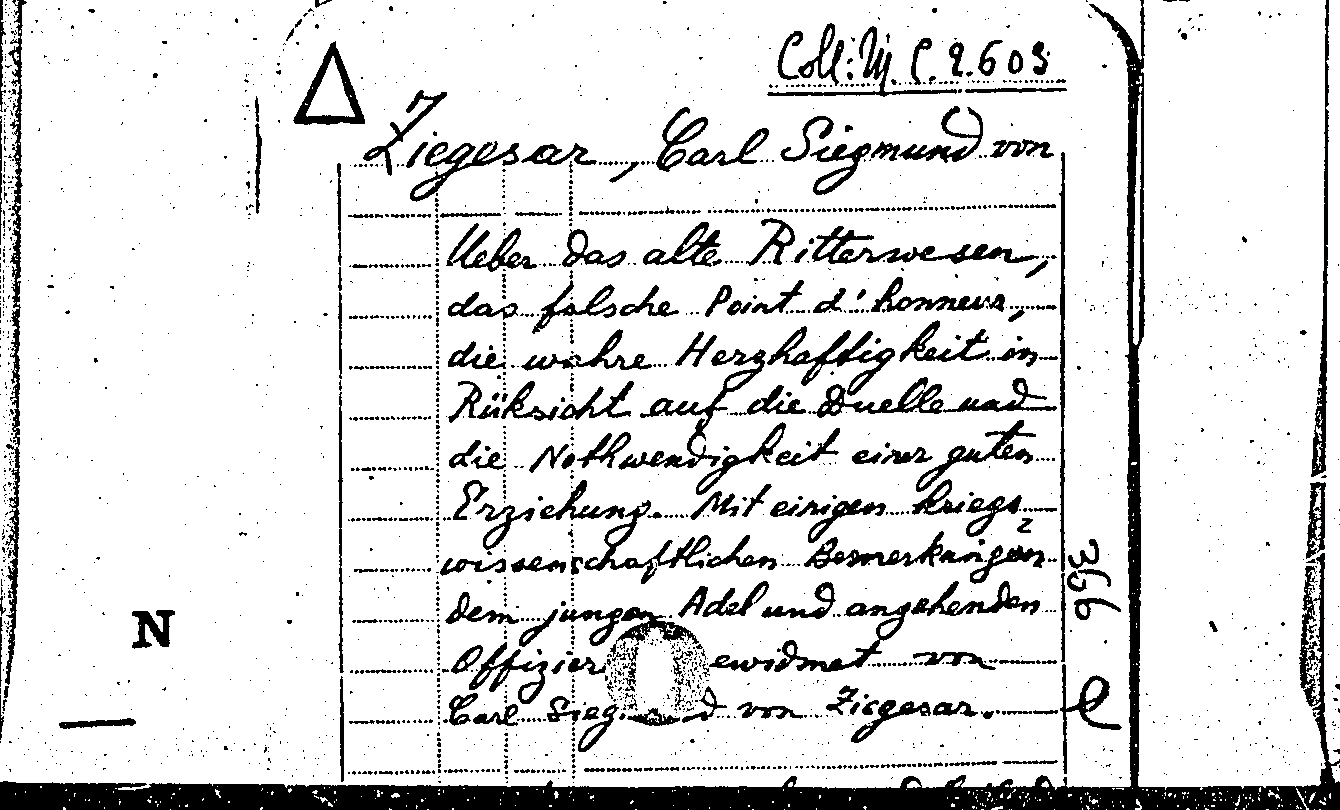 Coll: M C. 2.603
Ziegesar, Carl Siegmund von
Ueber das alte Ritterwesen,
das falsche Point d'honneur,
die wahre Herzhaftigkeit in
Rüksicht auf die Duelle und
die Nothwendigkeit einer guten
Erziehung. Mit einigen kriegs-
wissenschaftlichen Bemerkungen
dem jungen Adel und angehenden
Offizier ewidmet von
Carl Sieg d von Ziegesar.
366
N